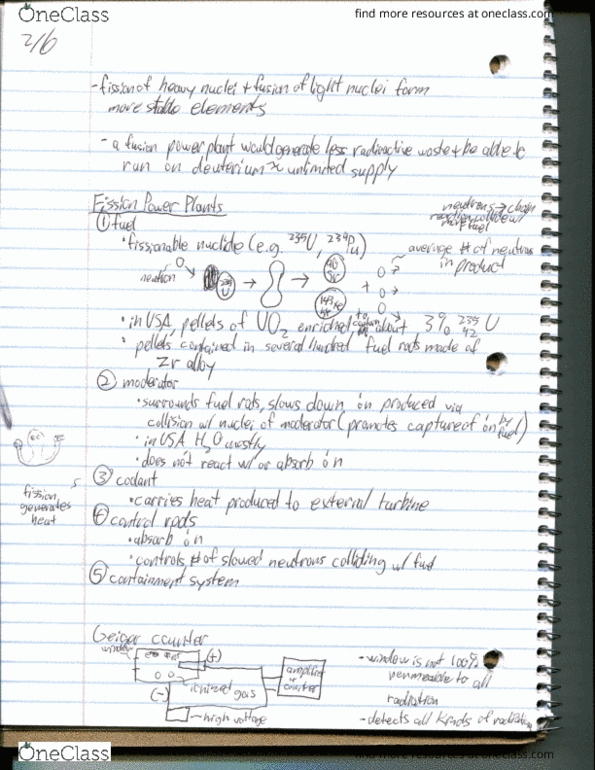 OneClass
find more resources at oneclass.com
2/6
- fission of heavy nuclei + fusion of light nuclei form
more stable elements
- a fusion power plant would generate less radioactive waste + be able to
run on deuterium ≈ unlimited supply
neutrons → chain
reaction collide w/
more fuel
Fission Power Plants
① fuel
• fissionable nuclide (e.g. 235U, 239Pu)
average # of neutrons
in product
neutron
235
U
90
+
• in USA, pellets of UO2 enriched to contain about 3% 235 U
• pellets contained in several hundred fuel rods made of
Zr alloy
② moderator
• surrounds fuel rods, slows down ón produced via
collision w/ nuclei of moderator (promotes capture of ón by fuel)
• in USA H2O mostly
• does not react w/ or absorb ón
③ coolant
• carries heat produced to external turbine
fission
generates
heat
④ control rods
• absorb ón
• controls # of slowed neutrons colliding w/ fuel
⑤ containment system
Geiger counter
window
(+)
(-)
ionized gas
amplifier
or
counter
high voltage
- window is not 100%
permeable to all
radiation
- detects all kinds of radiation
OneClass
find more resources at oneclass.com